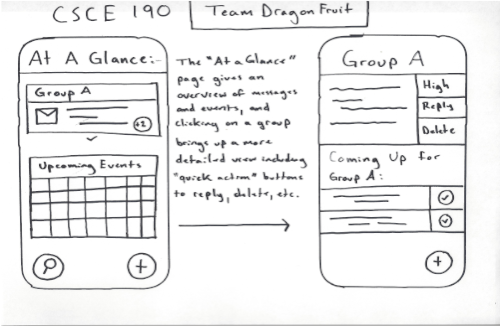 CSCE 190
Team Dragon Fruit
At A Glance:-
Group A
+2
Upcoming Events
+
The "At a Glance"
page gives an
overview of messages
and events, and
clicking on a group
brings up a more
detailed view including
"quick action" buttons
to reply, delete, etc.
Group A
High
Reply
Delete
Coming Up for
Group A:
+